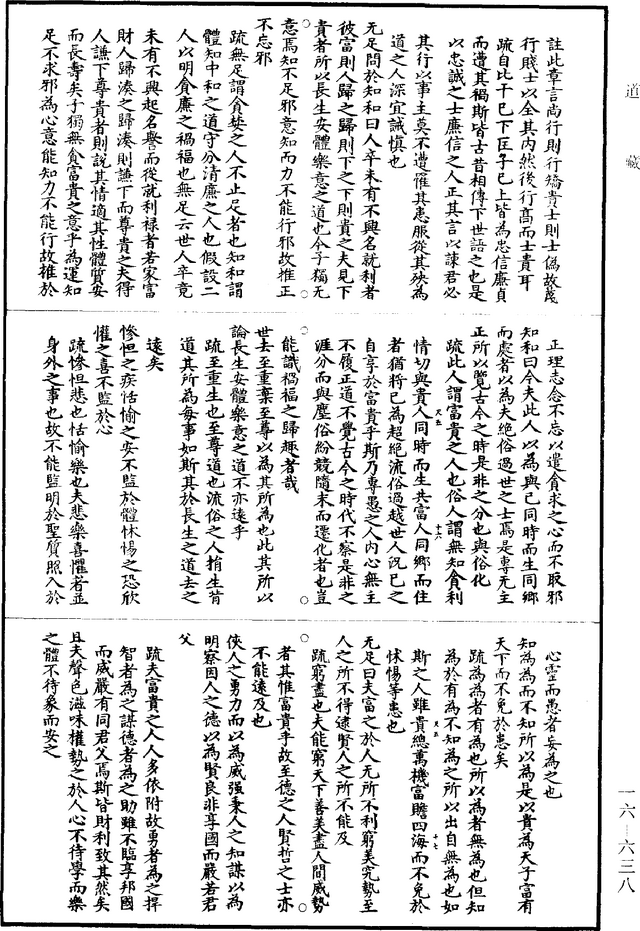 道藏
註此章言尚行則行矯貴士則士偽故蔑
行賤士以全其內然後行高而士貴耳
疏自比干已下匡子已上皆為忠信廉貞
而遭其禍斯皆古昔相傳下世語之也是
以忠誠之士廉信之人正其言以諫君必
其行以事主莫不遭罹其患服從其殃為
道之人深宜誡慎也
无足問於知和曰人卒未有不興名就利者
彼富則人歸之歸則下之下則貴之夫見下
貴者所以長生安體樂意之道也今子獨无
意焉知不足邪意知而力不能行邪故推正
不忘邪
疏無足謂貪婪之人不止足者也知和謂
體知中和之道守分清廉之人也假設二
人以明貪廉之禍福也無足云世人卒竟
未有不興起名譽而從就利祿者若家富
財人歸湊之歸湊則謙下而尊貴之夫得
人謙下尊貴者則說其情適其性體質安
而長壽矣子獨無貪富貴之意乎為運知
足不求邪為心意能知力不能行故推於
正理志念不忘以遣貪求之心而不取邪
知和曰今夫此人以為與己同時而生同鄉
而處者以為夫絕俗過世之士焉是專无主
正所以覽古今之時是非之分也與俗化
疏此人謂富貴之人也俗人謂無知貪利
情切與貴人同時而生共富人同鄉而住
者猶將已為超絕流俗過越世人況已之
自享於富貴乎斯乃專愚之人內心無主
不履正道不覺古今之時代不察是非之
涯分而與塵俗紛競隨末而遷化者也豈
能識禍福之歸趣者哉
世去至重棄至尊以為其所為也此其所以
論長生安體樂意之道不亦遠乎
疏至重生也至尊道也流俗之人捐生背
道其所為每事如斯其於長生之道去之
遠矣
慘怛之疾恬愉之安不監於體怵惕之恐欣
懽之喜不監於心
疏慘怛悲也恬愉樂也夫悲樂喜懼者並
身外之事也故不能監明於聖質照入於
心靈而愚者妄為之也
知為為而不知所以為是以貴為天子富有
天下而不免於患矣
疏為為者有為也所以為者無為也但知
為於有為不知為之所以出自無為也如
斯之人雖貴總萬機富贍四海而不免於
怵惕等患也
无足曰夫富之於人无所不利窮美究勢至
人之所不得逮賢人之所不能及
疏窮盡也夫能窮天下善美盡人間威勢
者其惟富貴乎故至德之人賢哲之士亦
不能遠及也
俠人之勇力而以為威強秉人之知謀以為
明察因人之德以為賢良非享國而嚴若君
父
疏夫富貴之人人多依附故勇者為之捍
智者為之謀德者為之助雖不臨享邦國
而威嚴有同君父焉斯皆財利致其然矣
且夫聲色滋味權勢之於人心不待學而樂
之體不待象而安之
一六—六三八